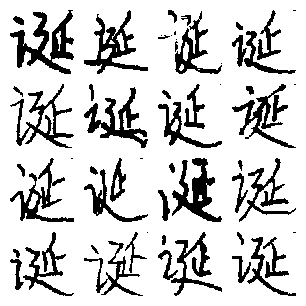 诞诞诞诞
诞诞诞诞
诞诞诞诞
诞诞诞诞